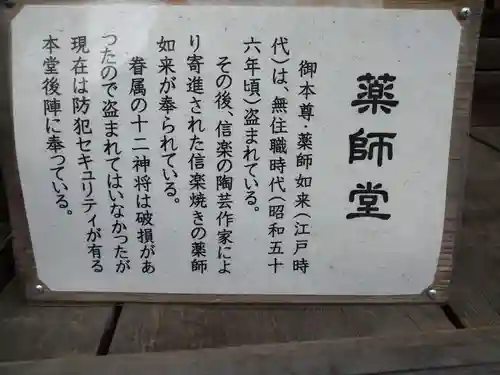 薬師堂
御本尊・薬師如来（江戸時
代）は、無住職時代（昭和五十
六年頃）盗まれている。
その後、信楽の陶芸作家によ
り寄進された信楽焼きの薬師
如来が奉られている。
眷属の十二神将は破損があ
つたので盗まれてはいなかったが
現在は防犯セキュリティが有る
本堂後陣に奉っている。